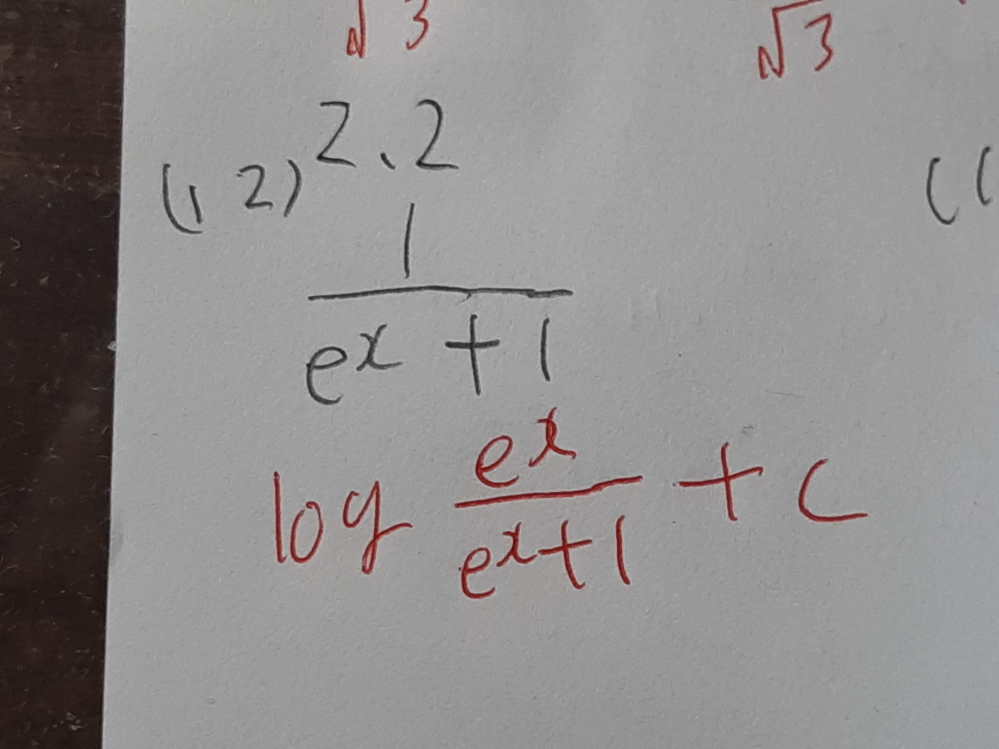 √3 √3
(12) 2.2 ((
1/(eˣ + 1)
log eˣ/(eˣ+1) + c